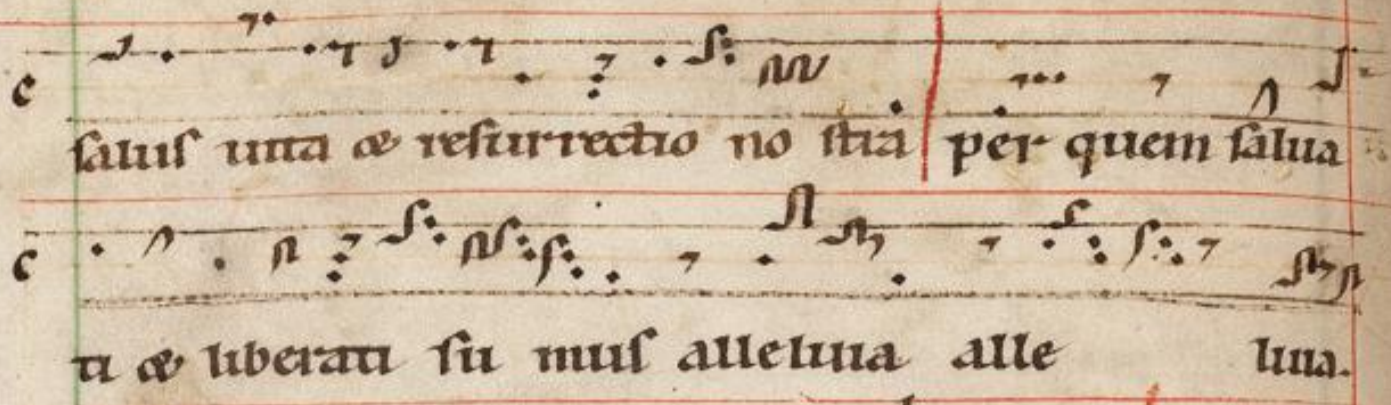 c
salus uita & resurrectio no stra per quem salua
c
ti & liberati su mus alleluia alle luia.